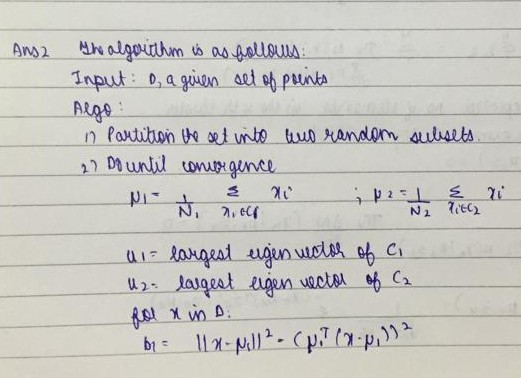 Ans 2 The algorithm is as follows:
Input: D, a given set of points
Algo:
1) Partition the set into two random subsets.
2) Do until convergence
μ1 = 1/N1 Σ xi∈C1 xi ; μ2 = 1/N2 Σ xi∈C2 xi
u1 = largest eigen vector of C1
u2 = largest eigen vector of C2
for x in D:
D1 = ||x-μ1||² - (μ1ᵀ(x-μ1))²